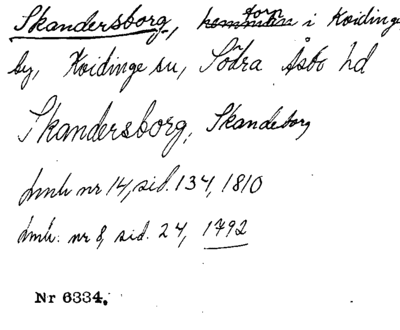 Skandersborg, torp i Koidinge
by, Koidinge su, Södra Åsbo hd
Skandersborg, Skandeborg
dmb nr 14, sid. 134, 1810
dmb. nr 8, sid. 24, 1792
Nr 6334.